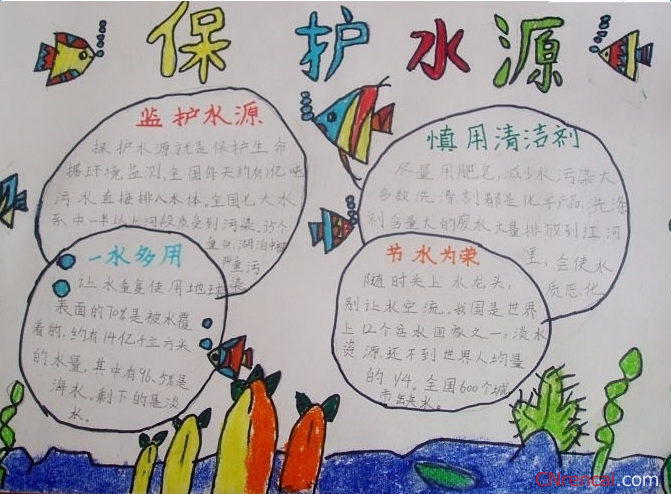 保护水源
监护水源
保护水源就是保护生命
据环境监测,全国每天约有1亿吨
污水直接排入水体。全国七大水
系中一半以上河段水质受到污染。35个
重点湖泊中被
严重污
染
慎用清洁剂
尽量用肥皂,减少水污染大
多数洗涤剂都是化学产品,洗涤
剂含量大的废水大量排放到江河
里,会使水
质恶化
一水多用
让水重复使用地球
表面的70%是被水覆
着的。约有14亿千立方米
的水量,其中有96.5%是
海水。剩下的是淡
水。
节水为荣
随时关上水龙头,
别让水空流。我国是世界
上12个贫水国家之一,淡水
资源还不到世界人均量
的1/4。全国600个城
市缺水。
CNrencai.com